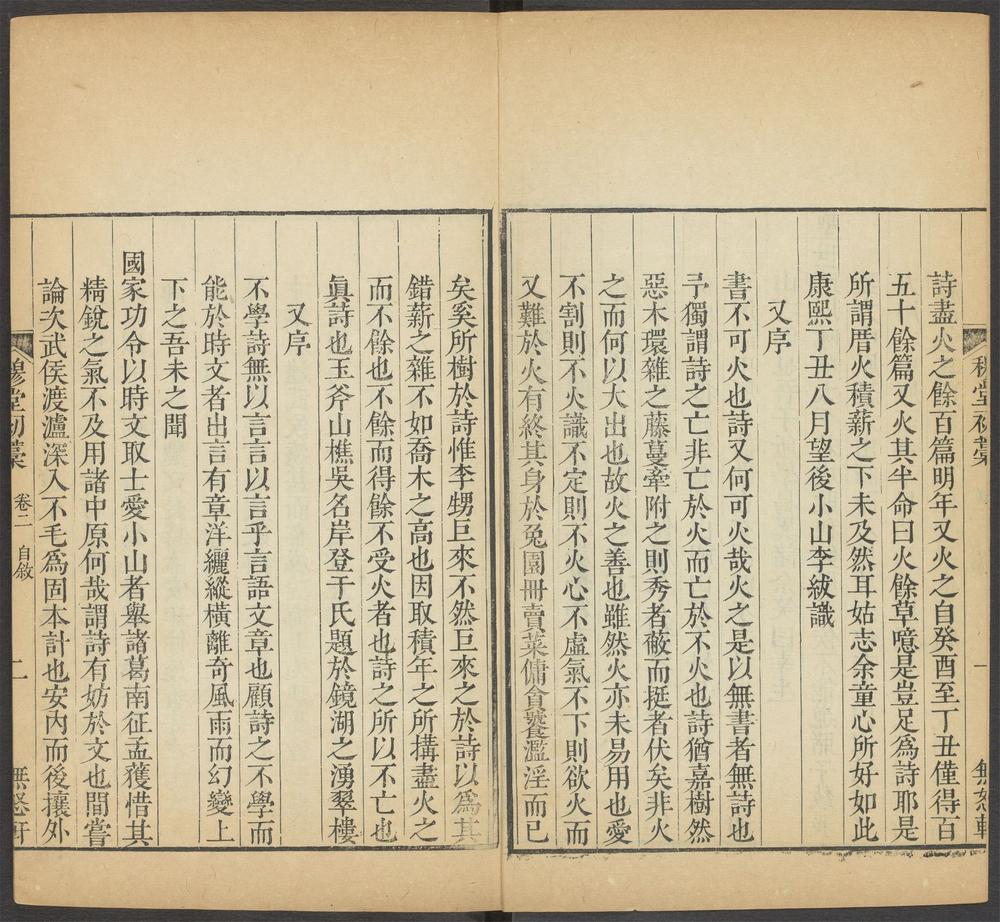 詩盡火之餘百篇明年又火之自癸酉至丁丑僅得百
五十餘篇又火其半命曰火餘草噫是豈足爲詩耶是
所謂厝火積薪之下未及然耳姑志余童心所好如此
康熙丁丑八月望後小山李紱識
又序
書不可火也詩又何可火哉火之是以無書者無詩也
予獨謂詩之亡非亡於火而亡於不火也詩猶嘉樹然
惡木環雜之藤蔓牽附之則秀者蔽而挺者伏矣非火
之而何以大出也故火之善也雖然火亦未易用也愛
不割則不火識不定則不火心不虛氣不下則欲火而
又難於火有終其身於兔園冊賣菜傭貪饕濫淫而已
矣奚所樹於詩惟李甥巨來不然巨來之於詩以爲其
錯薪之雜不如喬木之高也因取積年之所搆盡火之
而不餘也不餘而得餘不受火者也詩之所以不亡也
眞詩也玉斧山樵吳名岸登于氏題於鏡湖之湧翠樓
又序
不學詩無以言言以言乎言語文章也顧詩之不學而
能於時文者出言有章洋纚縱橫離奇風雨而幻變上
下之吾未之聞
國家功令以時文取士愛小山者舉諸葛南征孟獲惜其
精銳之氣不及用諸中原何哉謂詩有妨於文也間嘗
論次武侯渡瀘深入不毛爲固本計也安內而後攘外
穆堂初藁 卷二 自敘 二 無怒軒
穆堂初藁 一 無怒軒